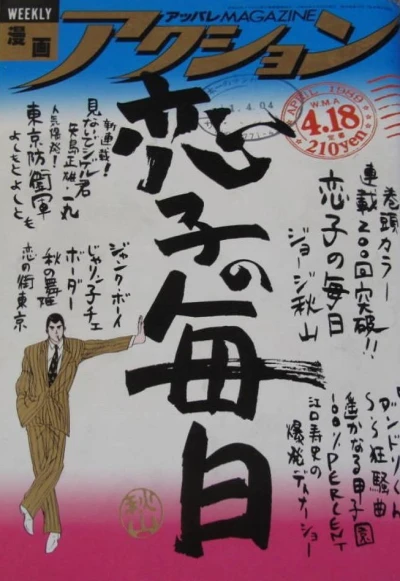 WEEKLY
漫画
アッパレMAGAZINE
アクション
APRIL 1989
W.M.A
4.18
定価
210yen
恋子の毎日
巻頭カラー
連載200回突破!!
恋子の毎日
ジョージ秋山
新連載!
見ないでシゲル君
矢島正雄・一丸
人気爆発!
東京防衛軍
よしもとよしとも
ジャンク・ボーイ
じゃりン子チエ
ボーダー
秋の舞姫
恋の街東京
ダンドリくん
S・S狂騒曲
遙かなる甲子園
100%PERCENT
江口寿史の
爆発ディナーショー
秋山